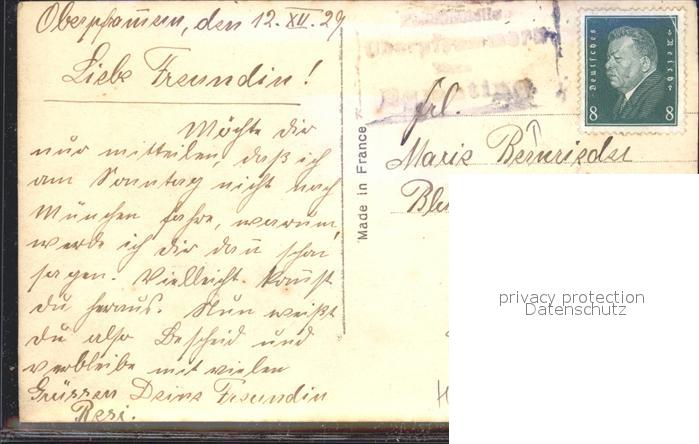 Oberpframmern, den 12. XII. 29
Liebe Freundin!
Möchte dir
nur mitteilen, daß ich
am Sonntag nicht nach
München fahre, warum,
werde ich dir dan schon
sagen. Vielleicht kommst
du heraus. Nun weißt
du also Bescheid und
verbleibe mit vielen
Grüssen Deine Freundin
Resi.
Made in France
Oberpframmern
Deutsches Reich
8 8
Frl.
Marie Bernrieder
privacy protection
Datenschutz